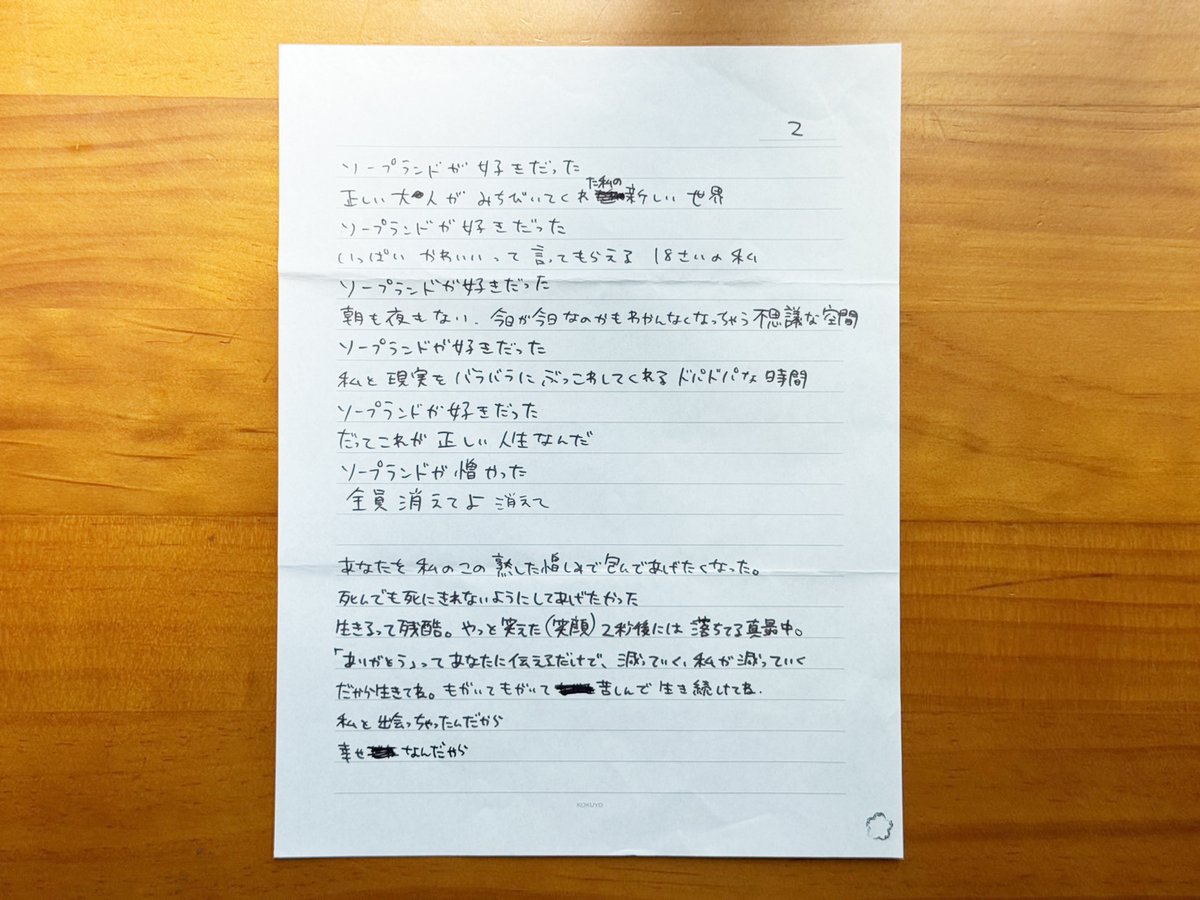 2
ソープランドが好きだった
正しい大人がみちびいてくれた私の新しい世界
ソープランドが好きだった
いっぱいかわいいって言ってもらえる18さいの私
ソープランドが好きだった
朝も夜もない、今日が今日なのかもわかんなくなっちゃう不思議な空間
ソープランドが好きだった
私と現実をバラバラにぶっこわしてくれるドパドパな時間
ソープランドが好きだった
だってこれが正しい人生なんだ
ソープランドが憎かった
全員消えてよ消えて
あなたを私のこの熟した憎しみで包んであげたくなった。
死んでも死にきれないようにしてあげたかった
生きるって残酷。やっと笑えた(笑顔)2秒後には落ちてる真最中。
「ありがとう」ってあなたに伝えるだけで、減っていく、私が減っていく
だから生きてね。もがいてもがいて苦しんで生き続けてね.
私と出会っちゃったんだから
幸せなんだから
KOKUYO